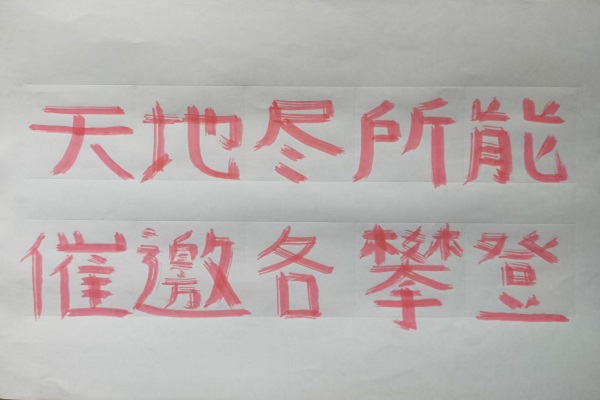 天地尽所能
催邀各攀登